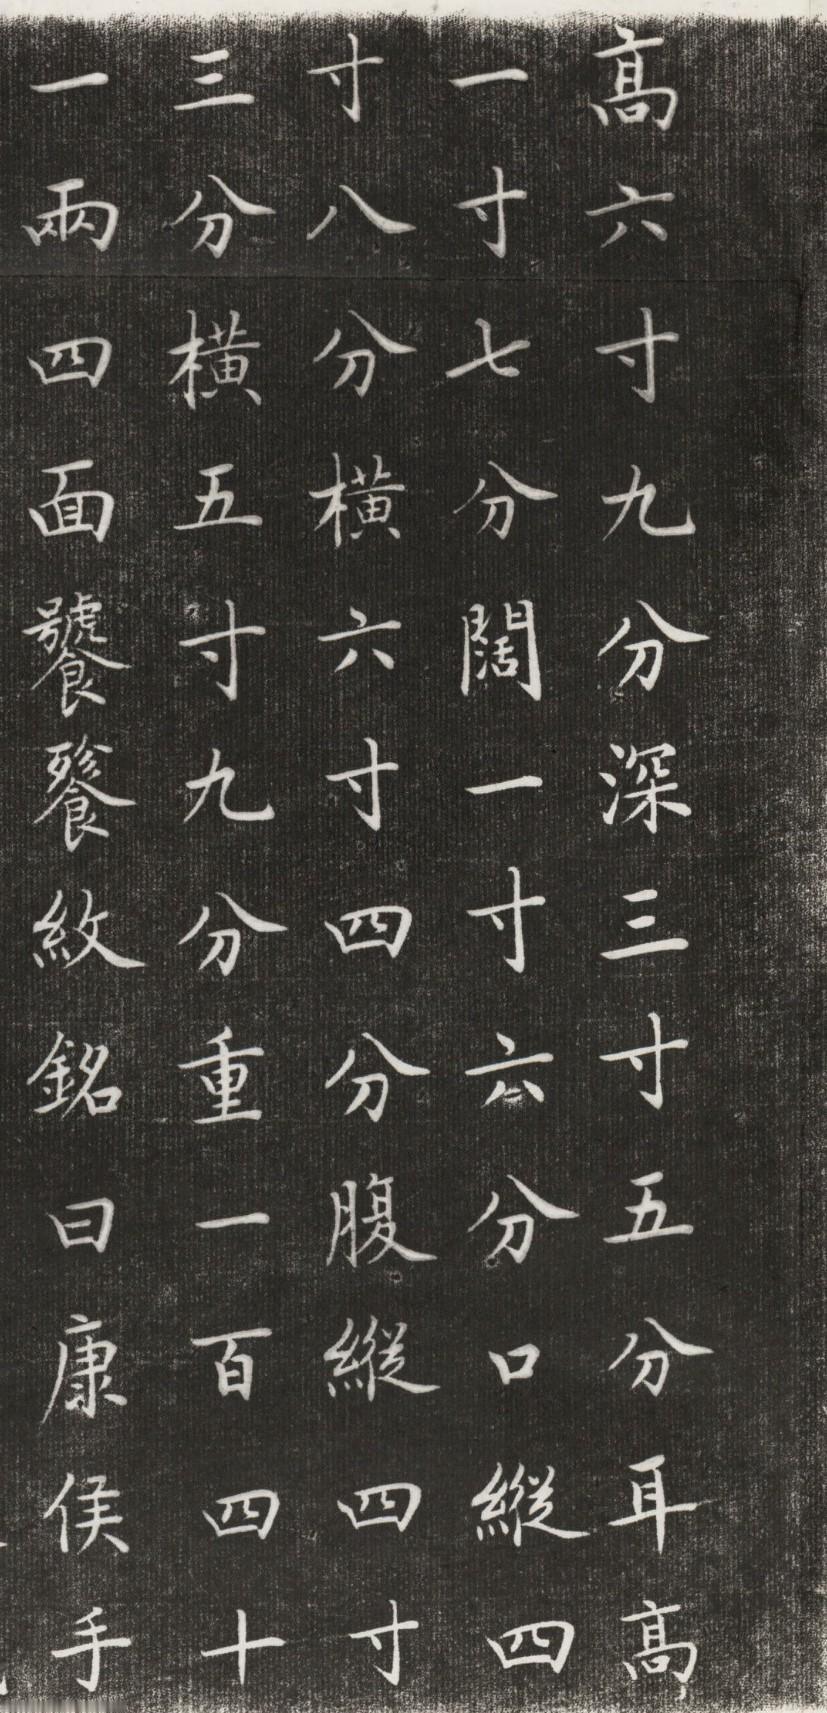 高六寸九分深三寸五分耳高
一寸七分闊一寸六分口縱四
寸八分橫六寸四分腹縱四寸
三分橫五寸九分重一百四十
一兩四面饕餮紋銘曰康侯手